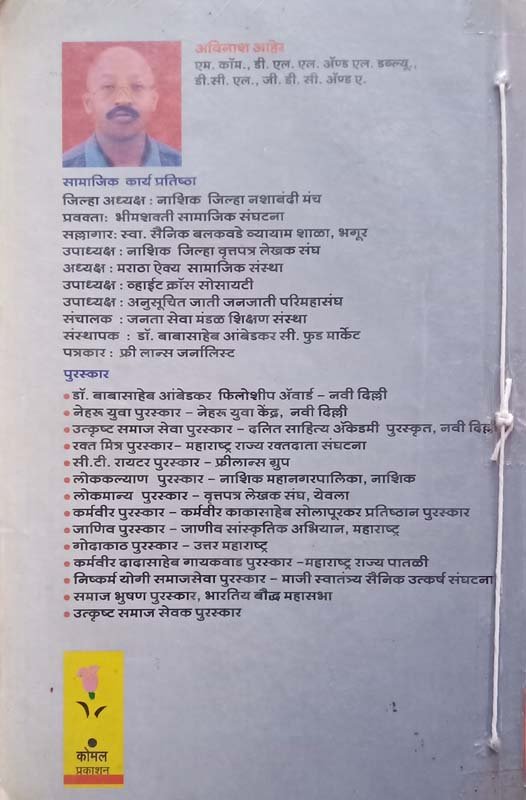 अविनाश आहेर
एम. कॉम., डी. एल. एल. ॲण्ड एल. डब्ल्यू.,
डी.सी. एल., जी. डी. सी. ॲण्ड ए.
सामाजिक कार्य प्रतिष्ठा
जिल्हा अध्यक्ष : नाशिक जिल्हा नशाबंदी मंच
प्रवक्ता: भीमशक्ती सामाजिक संघटना
सल्लागार: स्वा. सैनिक बलकवडे व्यायाम शाळा, भगूर
उपाध्यक्ष : नाशिक जिल्हा वृत्तपत्र लेखक संघ
अध्यक्ष : मराठा ऐक्य सामाजिक संस्था
उपाध्यक्ष : व्हाईट क्रॉस सोसायटी
उपाध्यक्ष : अनुसूचित जाती जनजाती परिमहासंघ
संचालक : जनता सेवा मंडळ शिक्षण संस्था
संस्थापक : डॉ. बाबासाहेब आंबेडकर सी. फुड मार्केट
पत्रकार : फ्री लान्स जर्नालिस्ट
पुरस्कार
• डॉ. बाबासाहेब आंबेडकर फिलोशीप ॲवार्ड – नवी दिल्ली
• नेहरू युवा पुरस्कार – नेहरू युवा केंद्र, नवी दिल्ली
• उत्कृष्ट समाज सेवा पुरस्कार – दलित साहित्य अॅकेडमी पुरस्कृत, नवी दिल्ली
• रक्त मित्र पुरस्कार– महाराष्ट्र राज्य रक्तदाता संघटना
• सी.टी. रायटर पुरस्कार – फ्रीलान्स ग्रुप
• लोककल्याण पुरस्कार – नाशिक महानगरपालिका, नाशिक
• लोकमान्य पुरस्कार – वृत्तपत्र लेखक संघ, येवला
• कर्मवीर पुरस्कार – कर्मवीर काकासाहेब सोलापूरकर प्रतिष्ठान पुरस्कार
• जाणिव पुरस्कार – जाणीव सांस्कृतिक अभियान, महाराष्ट्र
• गोदाकाठ पुरस्कार – उत्तर महाराष्ट्र
• कर्मवीर दादासाहेब गायकवाड पुरस्कार –महाराष्ट्र राज्य पातळी
• निष्कर्म योगी समाजसेवा पुरस्कार – माजी स्वातंत्र्य सैनिक उत्कर्ष संघटना
• समाज भुषण पुरस्कार, भारतिय बौद्ध महासभा
• उत्कृष्ट समाज सेवक पुरस्कार
कोमल
प्रकाशन